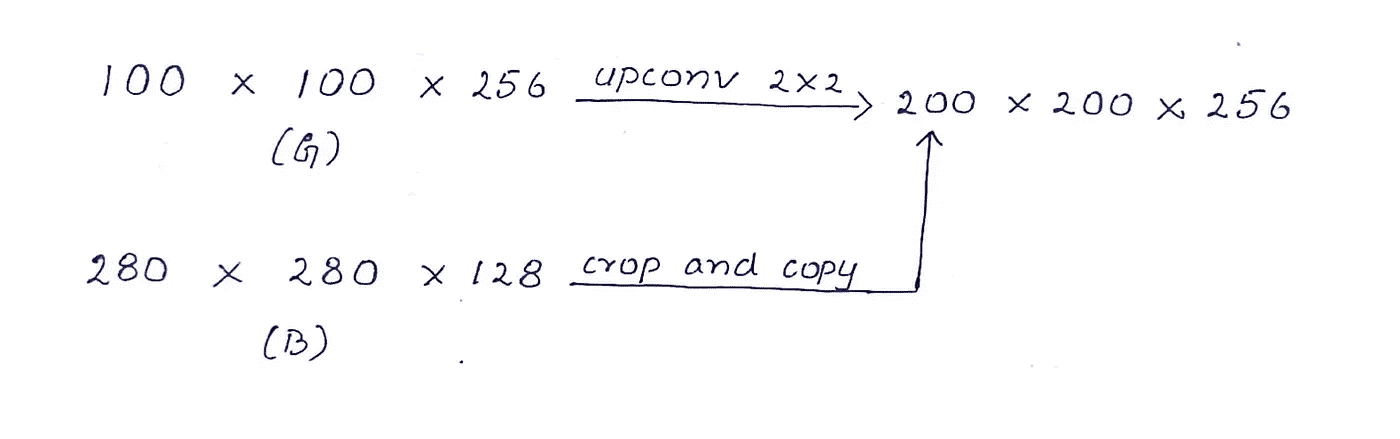 100 × 100 × 256 upconv 2×2 200 × 200 × 256
(G)
280 × 280 × 128 crop and copy
(B)